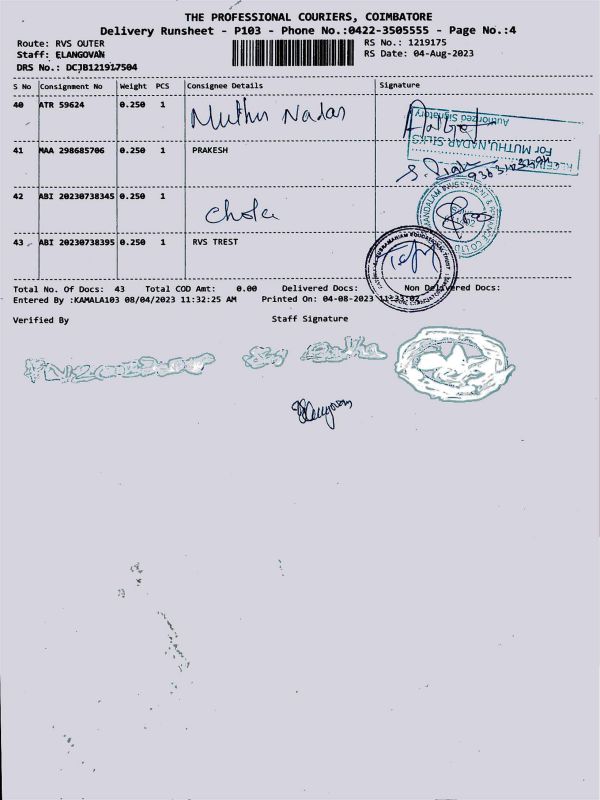 THE PROFESSIONAL COURIERS, COIMBATORE
Delivery Runsheet - P103 - Phone No.:0422-3505555 - Page No.:4
Route: RVS OUTER
RS No.: 1219175
Staff: ELANGOVAN
RS Date: 04-Aug-2023
DRS No.: DCJB121917504
S No Consignment No Weight PCS Consignee Details Signature
40 ATR 59624 0.250 1 Muthu Nadar
Authorized Signatory
For MUTHU NADAR SILKS
41 MAA 298685706 0.250 1 PRAKESH
42 ABI 20230738345 0.250 1 Chola
43 ABI 20230738395 0.250 1 RVS TREST
Total No. Of Docs: 43 Total COD Amt: 0.00 Delivered Docs: Non Delivered Docs:
Entered By :KAMALA103 08/04/2023 11:32:25 AM Printed On: 04-08-2023 11:33:02
Verified By Staff Signature